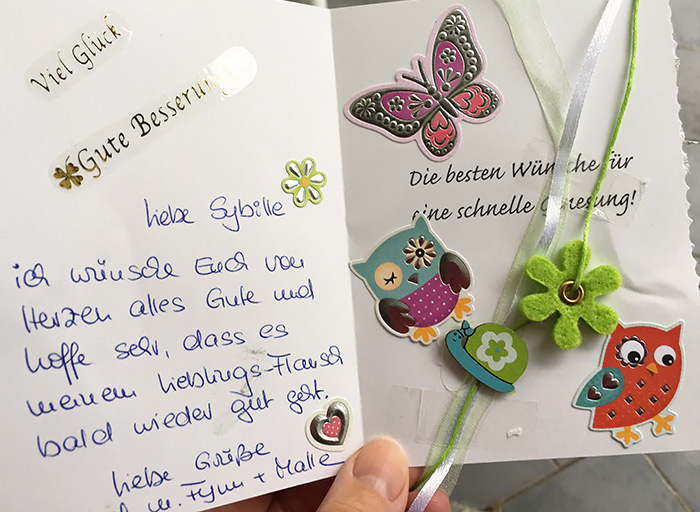 Viel Glück
Gute Besserung
liebe Sybille
ich wünsche Euch von
Herzen alles Gute und
hoffe sehr, dass es
meinem Lieblings-Flausch
bald wieder gut geht.
liebe Grüße
+ Malle
Die besten Wünsche für
eine schnelle Genesung!